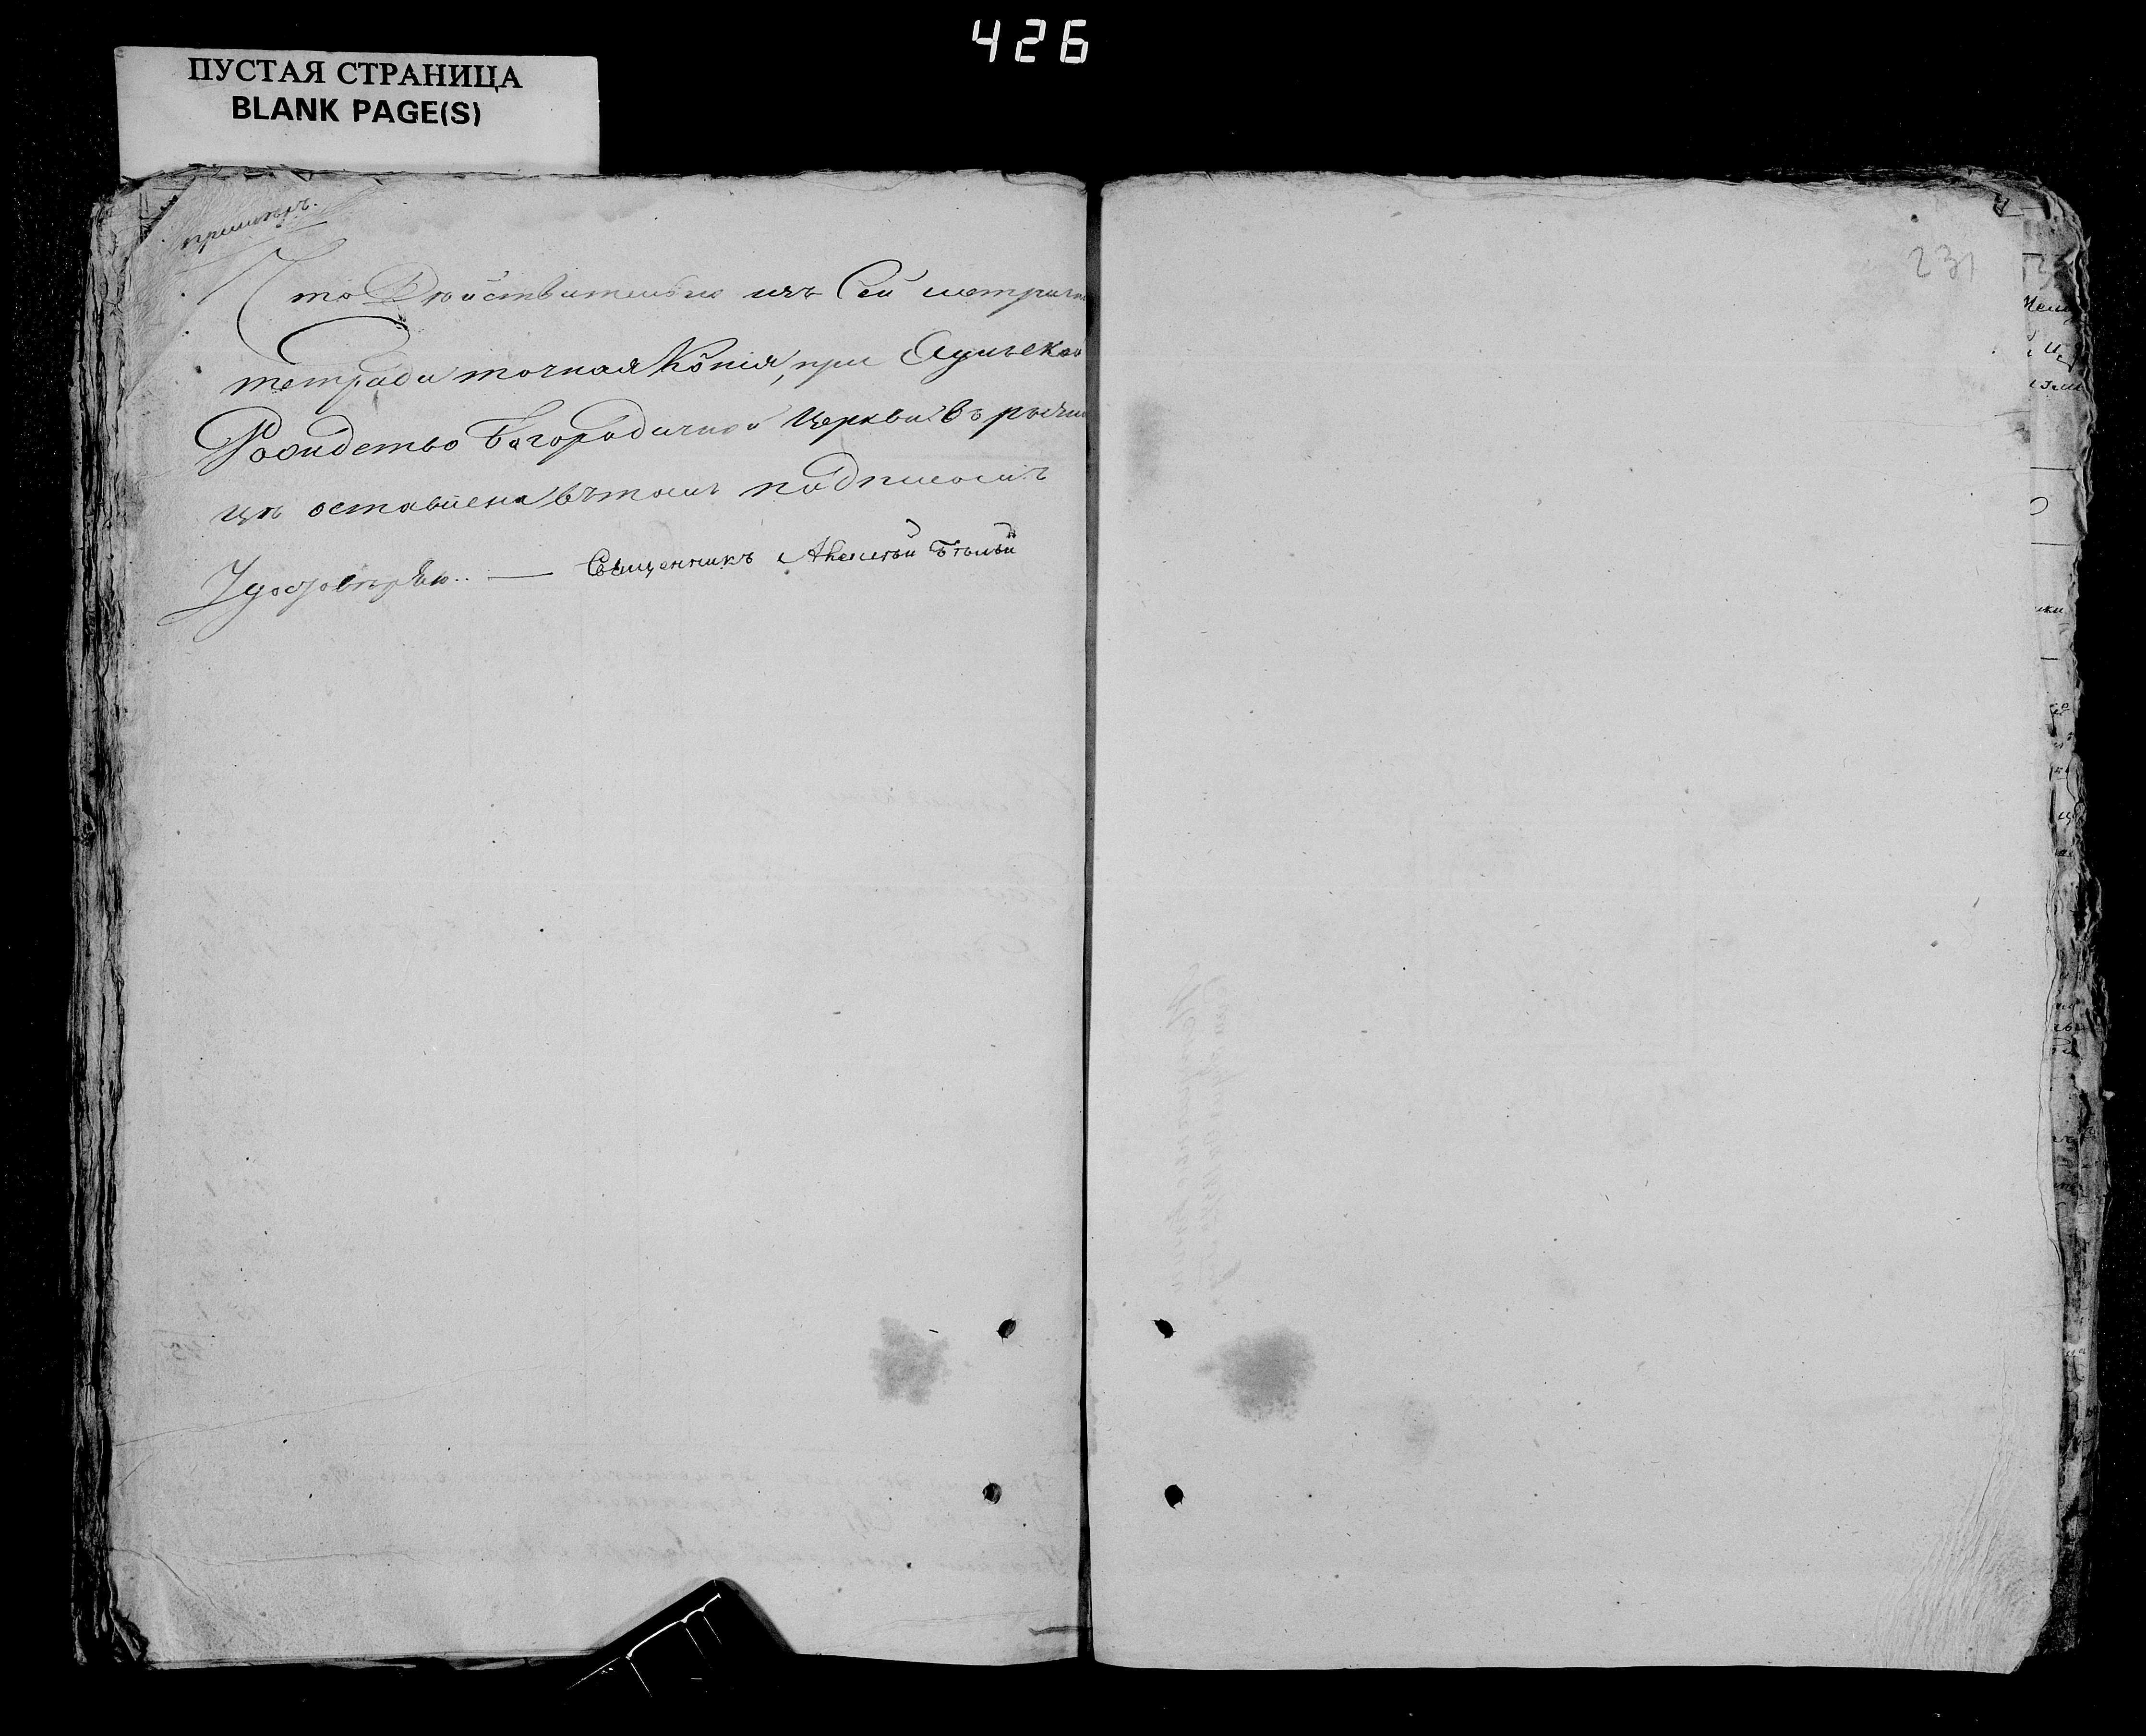 426
ПУСТАЯ СТРАНИЦА
BLANK PAGE(S)
231
Что Действительно изъ Сей метрич
тетради точная Копія, при
Рождество Богородичной Церкви въ ризни
цѣ оставлена въ томъ подписомъ
Удостовѣряю. — Священникъ Алексѣй Бѣлый